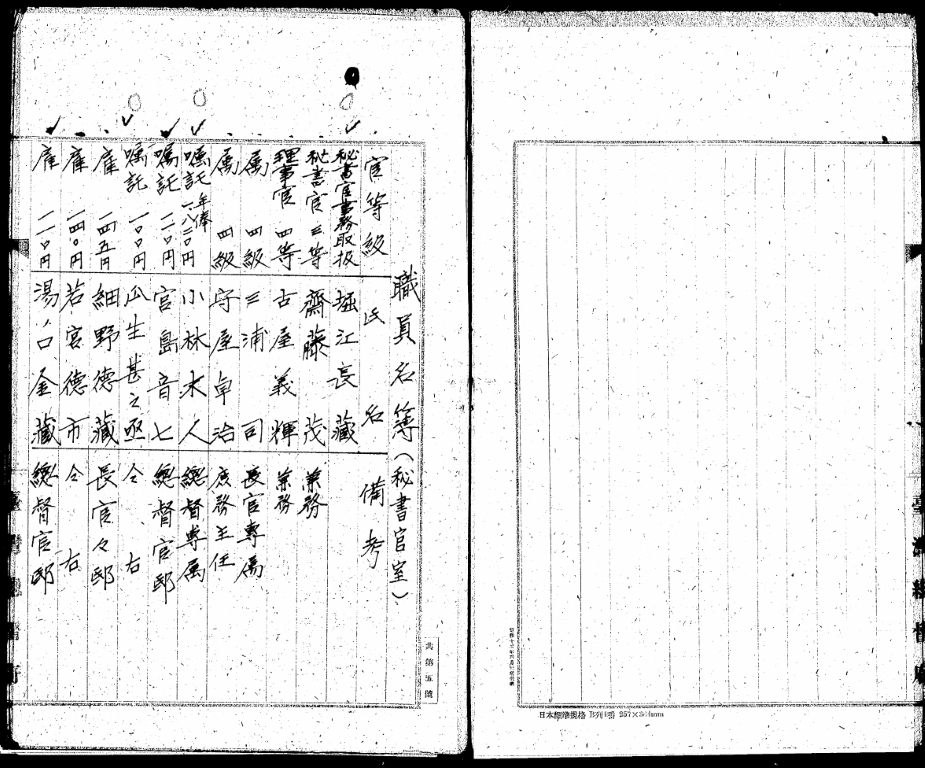 職員名簿(秘書官室)
官等級 氏名 備考
秘書官事務取扱 堀江長藏
秘書官 三等 齋藤茂 兼務
理事官 四等 古屋義輝 兼務
属 四級 三浦司 長官專属
属 四級 守屋卓治 庶務主任
嘱託 年俸 一八三〇円 小林木人 總督專属
嘱託 一二〇円 宮島音七 總督官邸
嘱託 一〇〇円 瓜生甚之亟 仝右
雇 一四五円 細野德藏 長官々邸
雇 一四〇円 若宮德市 仝右
雇 一一〇円 湯口金藏 總督官邸
共第五號
臺灣總督府
日本標準規格 B列4番 257×364mm